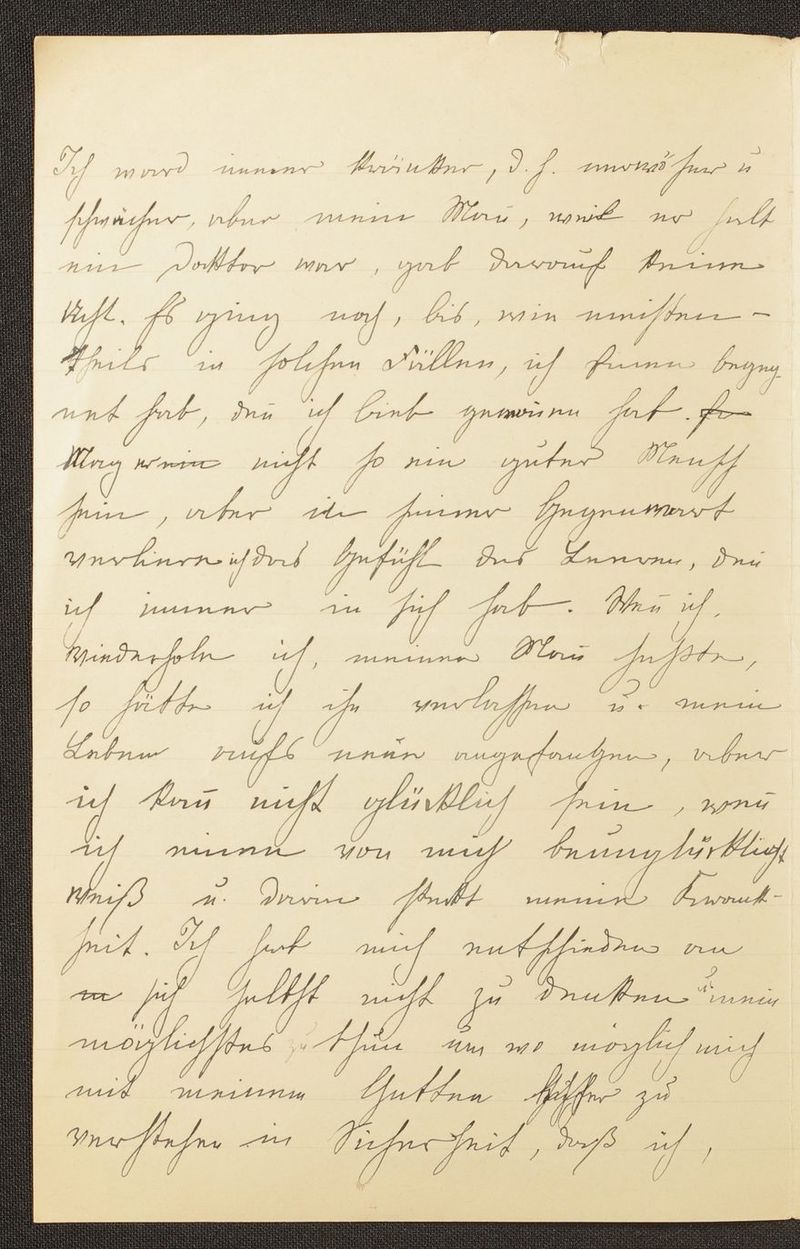 Ich ward immer kränkker, d. h. nerwöser u
schwächer, aber mein Man̄, weil er selt
ein Dokktor war, gab darauf keine
Acht. Es ging noch, bis, wie meisten-
theils in solchen Fällen, ich einen begeg-
net hab, den̄ ich lieb gewon̄nen hab. Er
Mag er ein nicht so ein guter Mensch
sein, aber in seiner Gegenwart
verliere ich das Gefühl des Leeren, den̄
ich immer in sich hab. Wen̄ ich,
wiederhole ich, meinen Man̄ haßte,
so hätte ich ihn verlassen u. mein
Leben aufs neue angefangen, aber
ich kan̄ nicht glücklich sein, wen̄
ich einen von mich beunglücklicht
weiß u. darin steckt meine Krank-
heit. Ich hab mich entschieden an
m sich selbst nicht zu denken u. mein
möglichstes zu thun um wo möglich mich
mit meinem Gatten besser zu
verstehen in Sicherheit, daß ich,